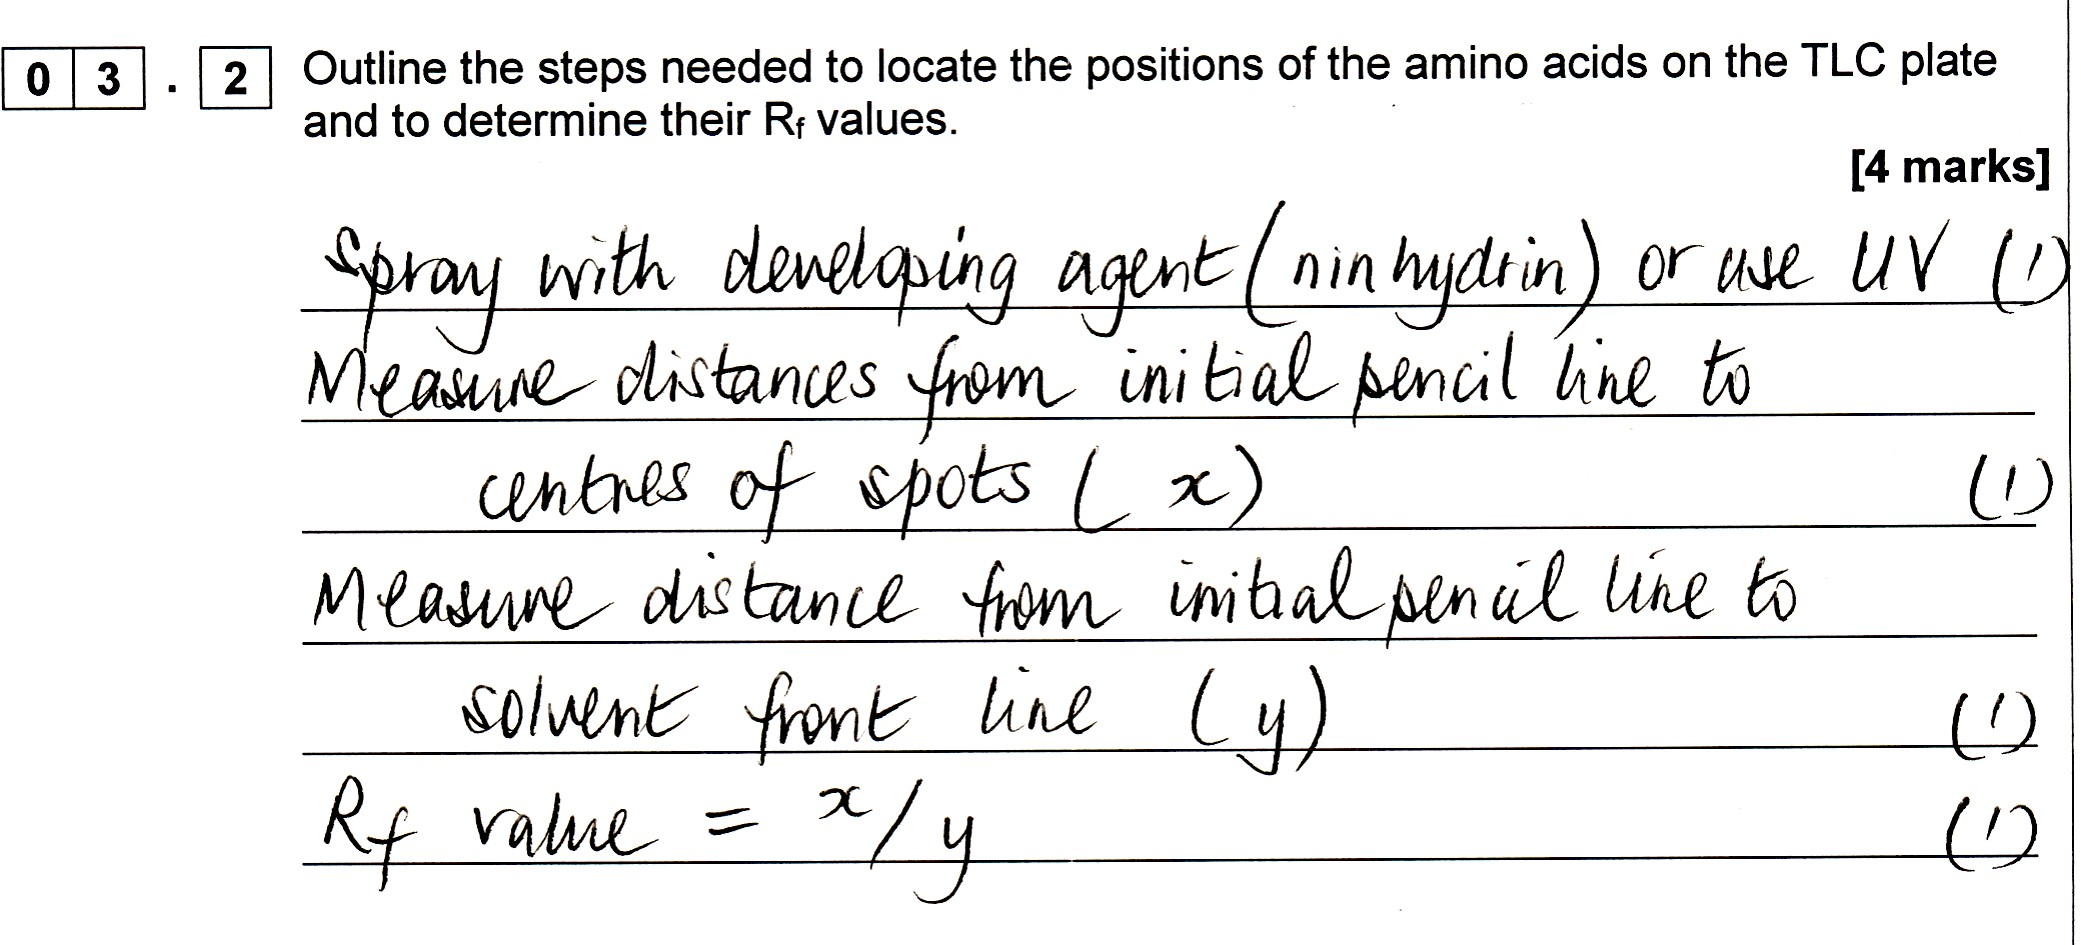 03.2 Outline the steps needed to locate the positions of the amino acids on the TLC plate
and to determine their Rf values.
[4 marks]
Spray with developing agent (ninhydrin) or use UV (1)
Measure distances from initial pencil line to
centres of spots (x) (1)
Measure distance from initial pencil line to
solvent front line (y) (1)
Rf value = x/y (1)